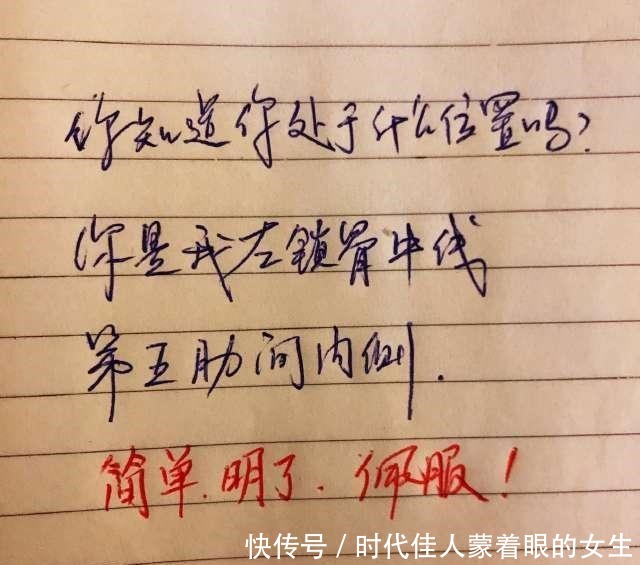 你知道你处于什么位置吗?
你是我左锁骨中线
第五肋间内侧.
简单.明了.佩服!
快传号/时代佳人蒙着眼的女生